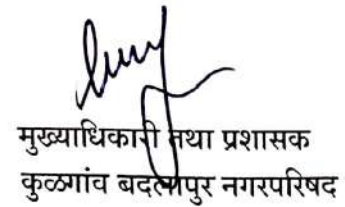 मुख्याधिकारी तथा प्रशासक
कुळगांव बदलापुर नगरपरिषद